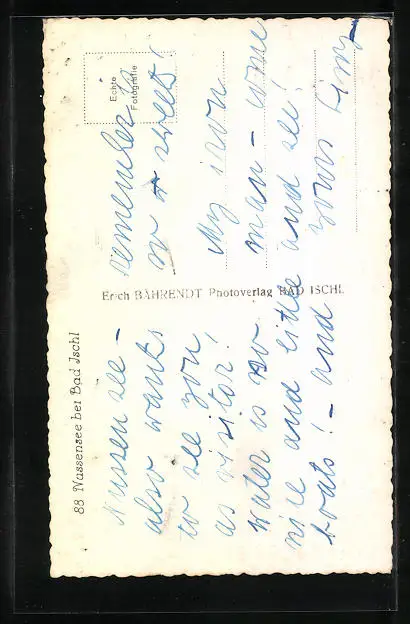 88 Nussensee bei Bad Ischl
Nussen see –
also wants
to see you,
as visitor!
Water is so
nice and little
boats! – and
Erich BÄHRENDT Photoverlag BAD ISCHL
Echte
Fotografie
remember
sweet!
My iron
man – come
and see!
yours